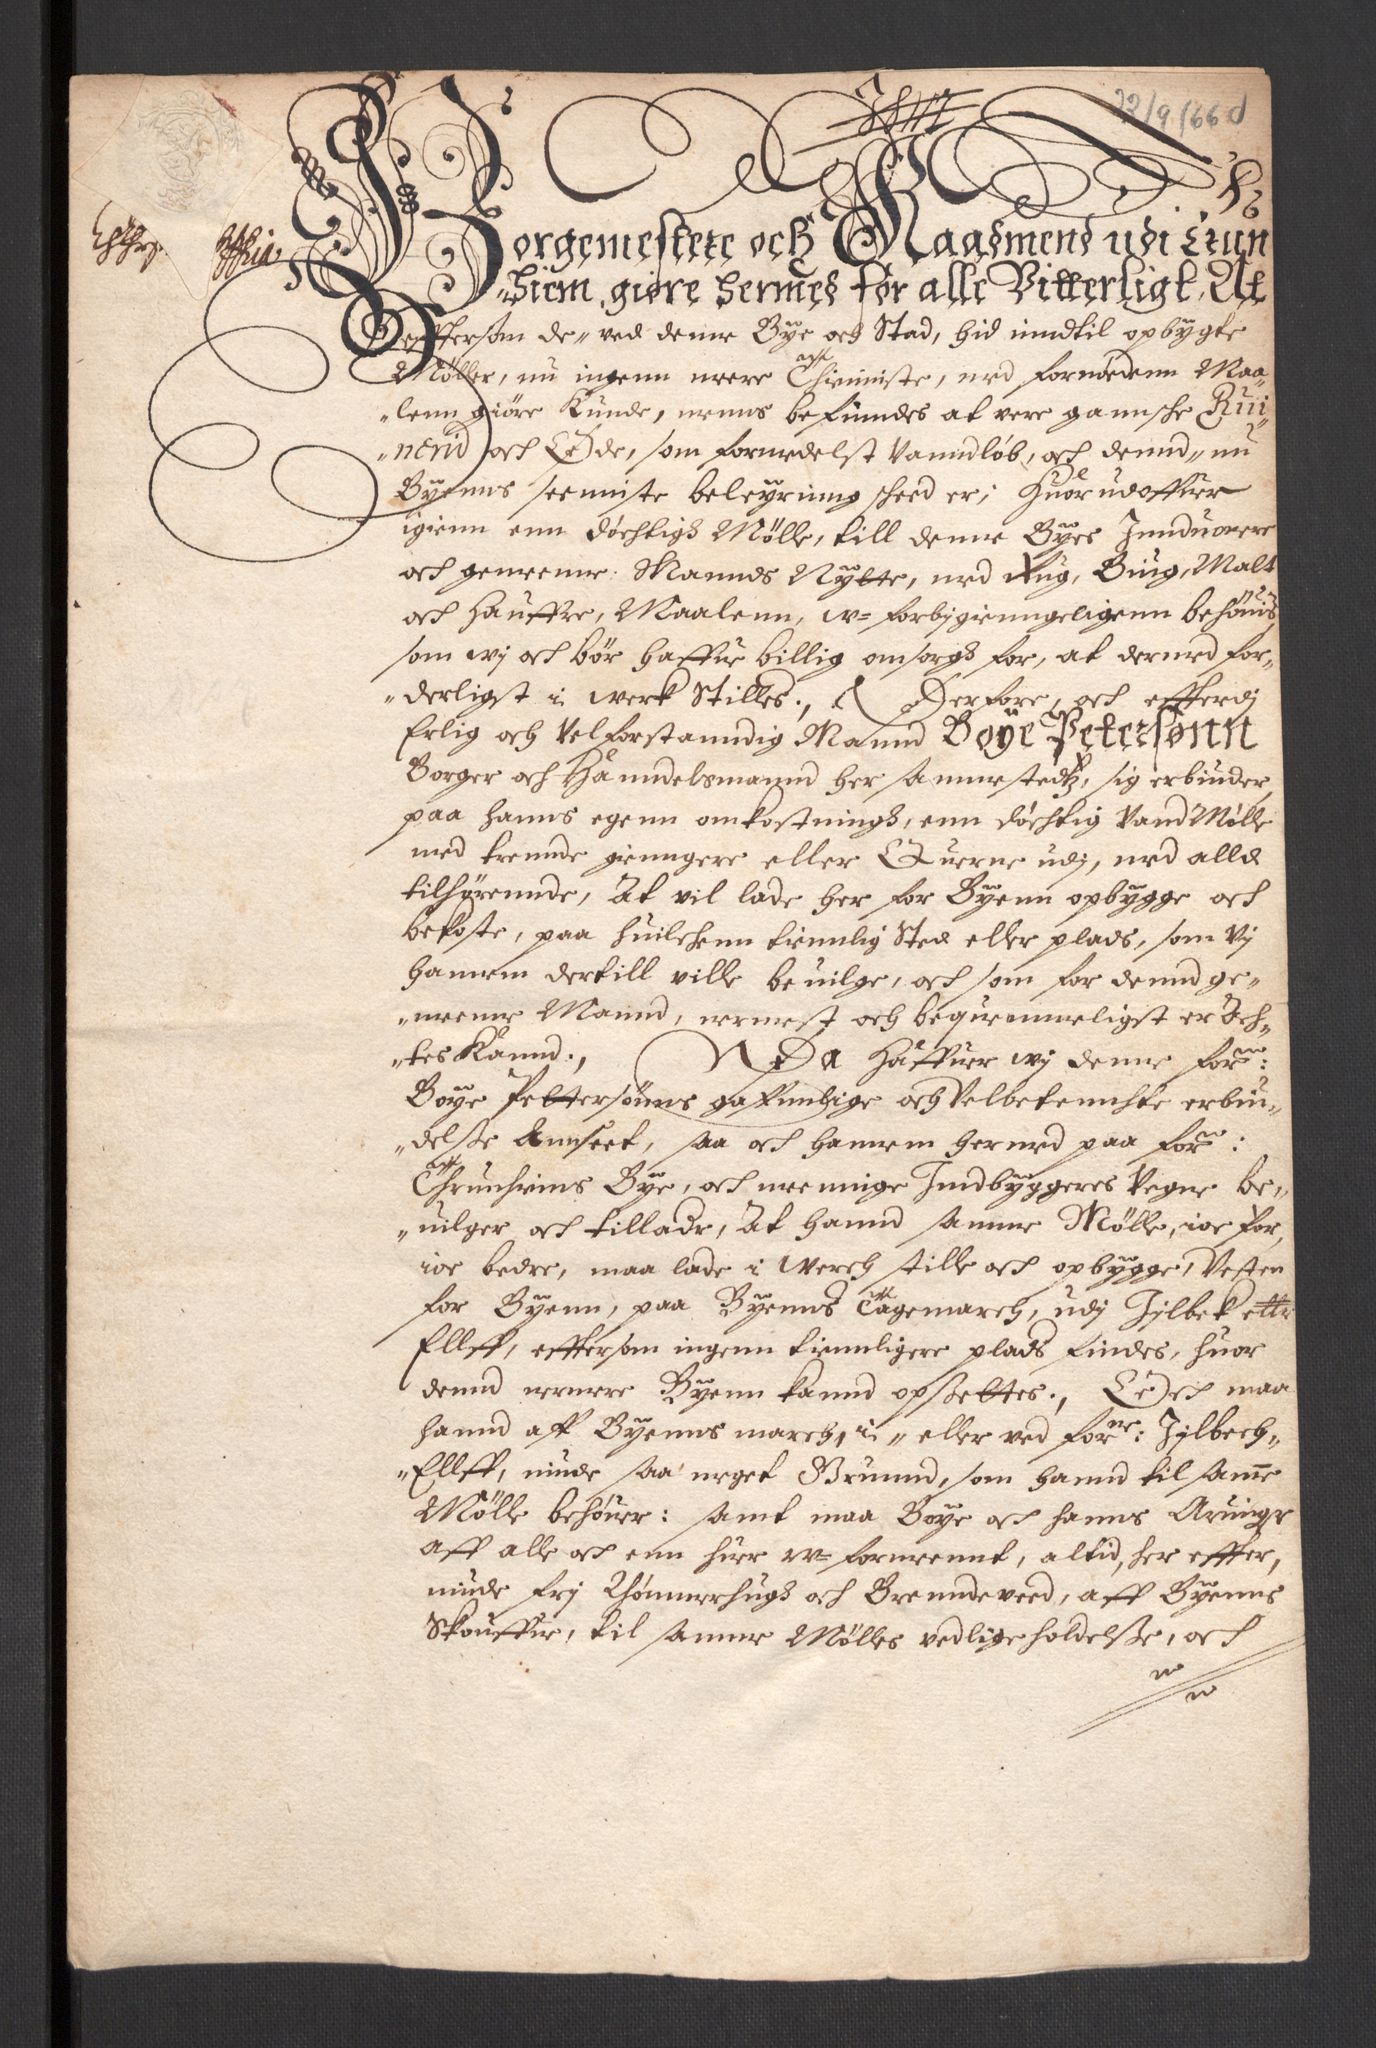 22/9 166 d
Borgemestere och Raadmend udi Trun
"hiem, giøre hermed før alle Vitterligt, At
effterson de" ved denne Bÿe och Stad, hid inndtil opbÿgte
Møller, nu ingenn meere Thienniste, med fornødenn Maa"
"lenn giøre kunde, menns befinndes at vere gannsche Rui"
"nerid och Øde, som formedelst Vanndløb, och dennd" nu
Bÿenns seenniste beleÿring scheed er; Huor udoffuer
igienn enn døchtigh Mølle, till denne Bÿes Innduonere
och gemeenne Mannds Nÿtte, med Rug, Biug, Malt
och Hauffre, Maalenn, w= forbigienngeligenn behøuis,
som wj och bør haffue billig omsorgh for, at dermed for"
"derligst i werk Stilles., Derfore, och effterdj
Erlig och Velforstanndig Mannd Boÿe Petersønn
Borger och Hanndelsmannd her sammestedtz, sig erbiuder,
paa hanns egenn omkostningh, enn døchtig Vand Mølle
med trennde gienngere eller Querne udj, med alld
tilhørennde, At vil lade her for Bÿenn opbÿgge och
bekoste, paa huilchenn tiennlig Sted eller plads, som Vj
hannem dertill ville beuilge, och som for dennd ge"
"meenne Mannd, nermest och bequemmeligst er Ach"
"tes kannd., Da Haffuer wj denne forne:
Boÿe Pettersønns gaffnnlige och Velbetennchte erbiu"
"delsse Annseet, saa och hannem hermed paa forne:
Thrunhiems Bÿe, och meenige Inndbÿggeres Vegne be"
"uilger och tillader, At hannd samme Mølle, ioe før,
ioe bedre, maa lade i Werch stille och opbÿgge, Vesten
for Bÿenn, paa Bÿenns Tagemarch, udj Jlbek ettr
Ellff, effterson ingenn tiennligere plads findes, huor
dennd nermere Bÿenn kannd opsettes., Och maa
hannd aff Bÿenns march, i" eller ved forne: Jlbech"
"Ellff, niude saa meget Grunnd, som hannd til samme
Mølle behøuer: samt maa Boÿe och hanns Aruinge
aff alle och enn huer w= formeennt, altid, her effter,
niude frj Thømmerhugh och Brenndeveed, aff Bÿenns
Skouffue, til samme Mølles vedligeholdelsse, och